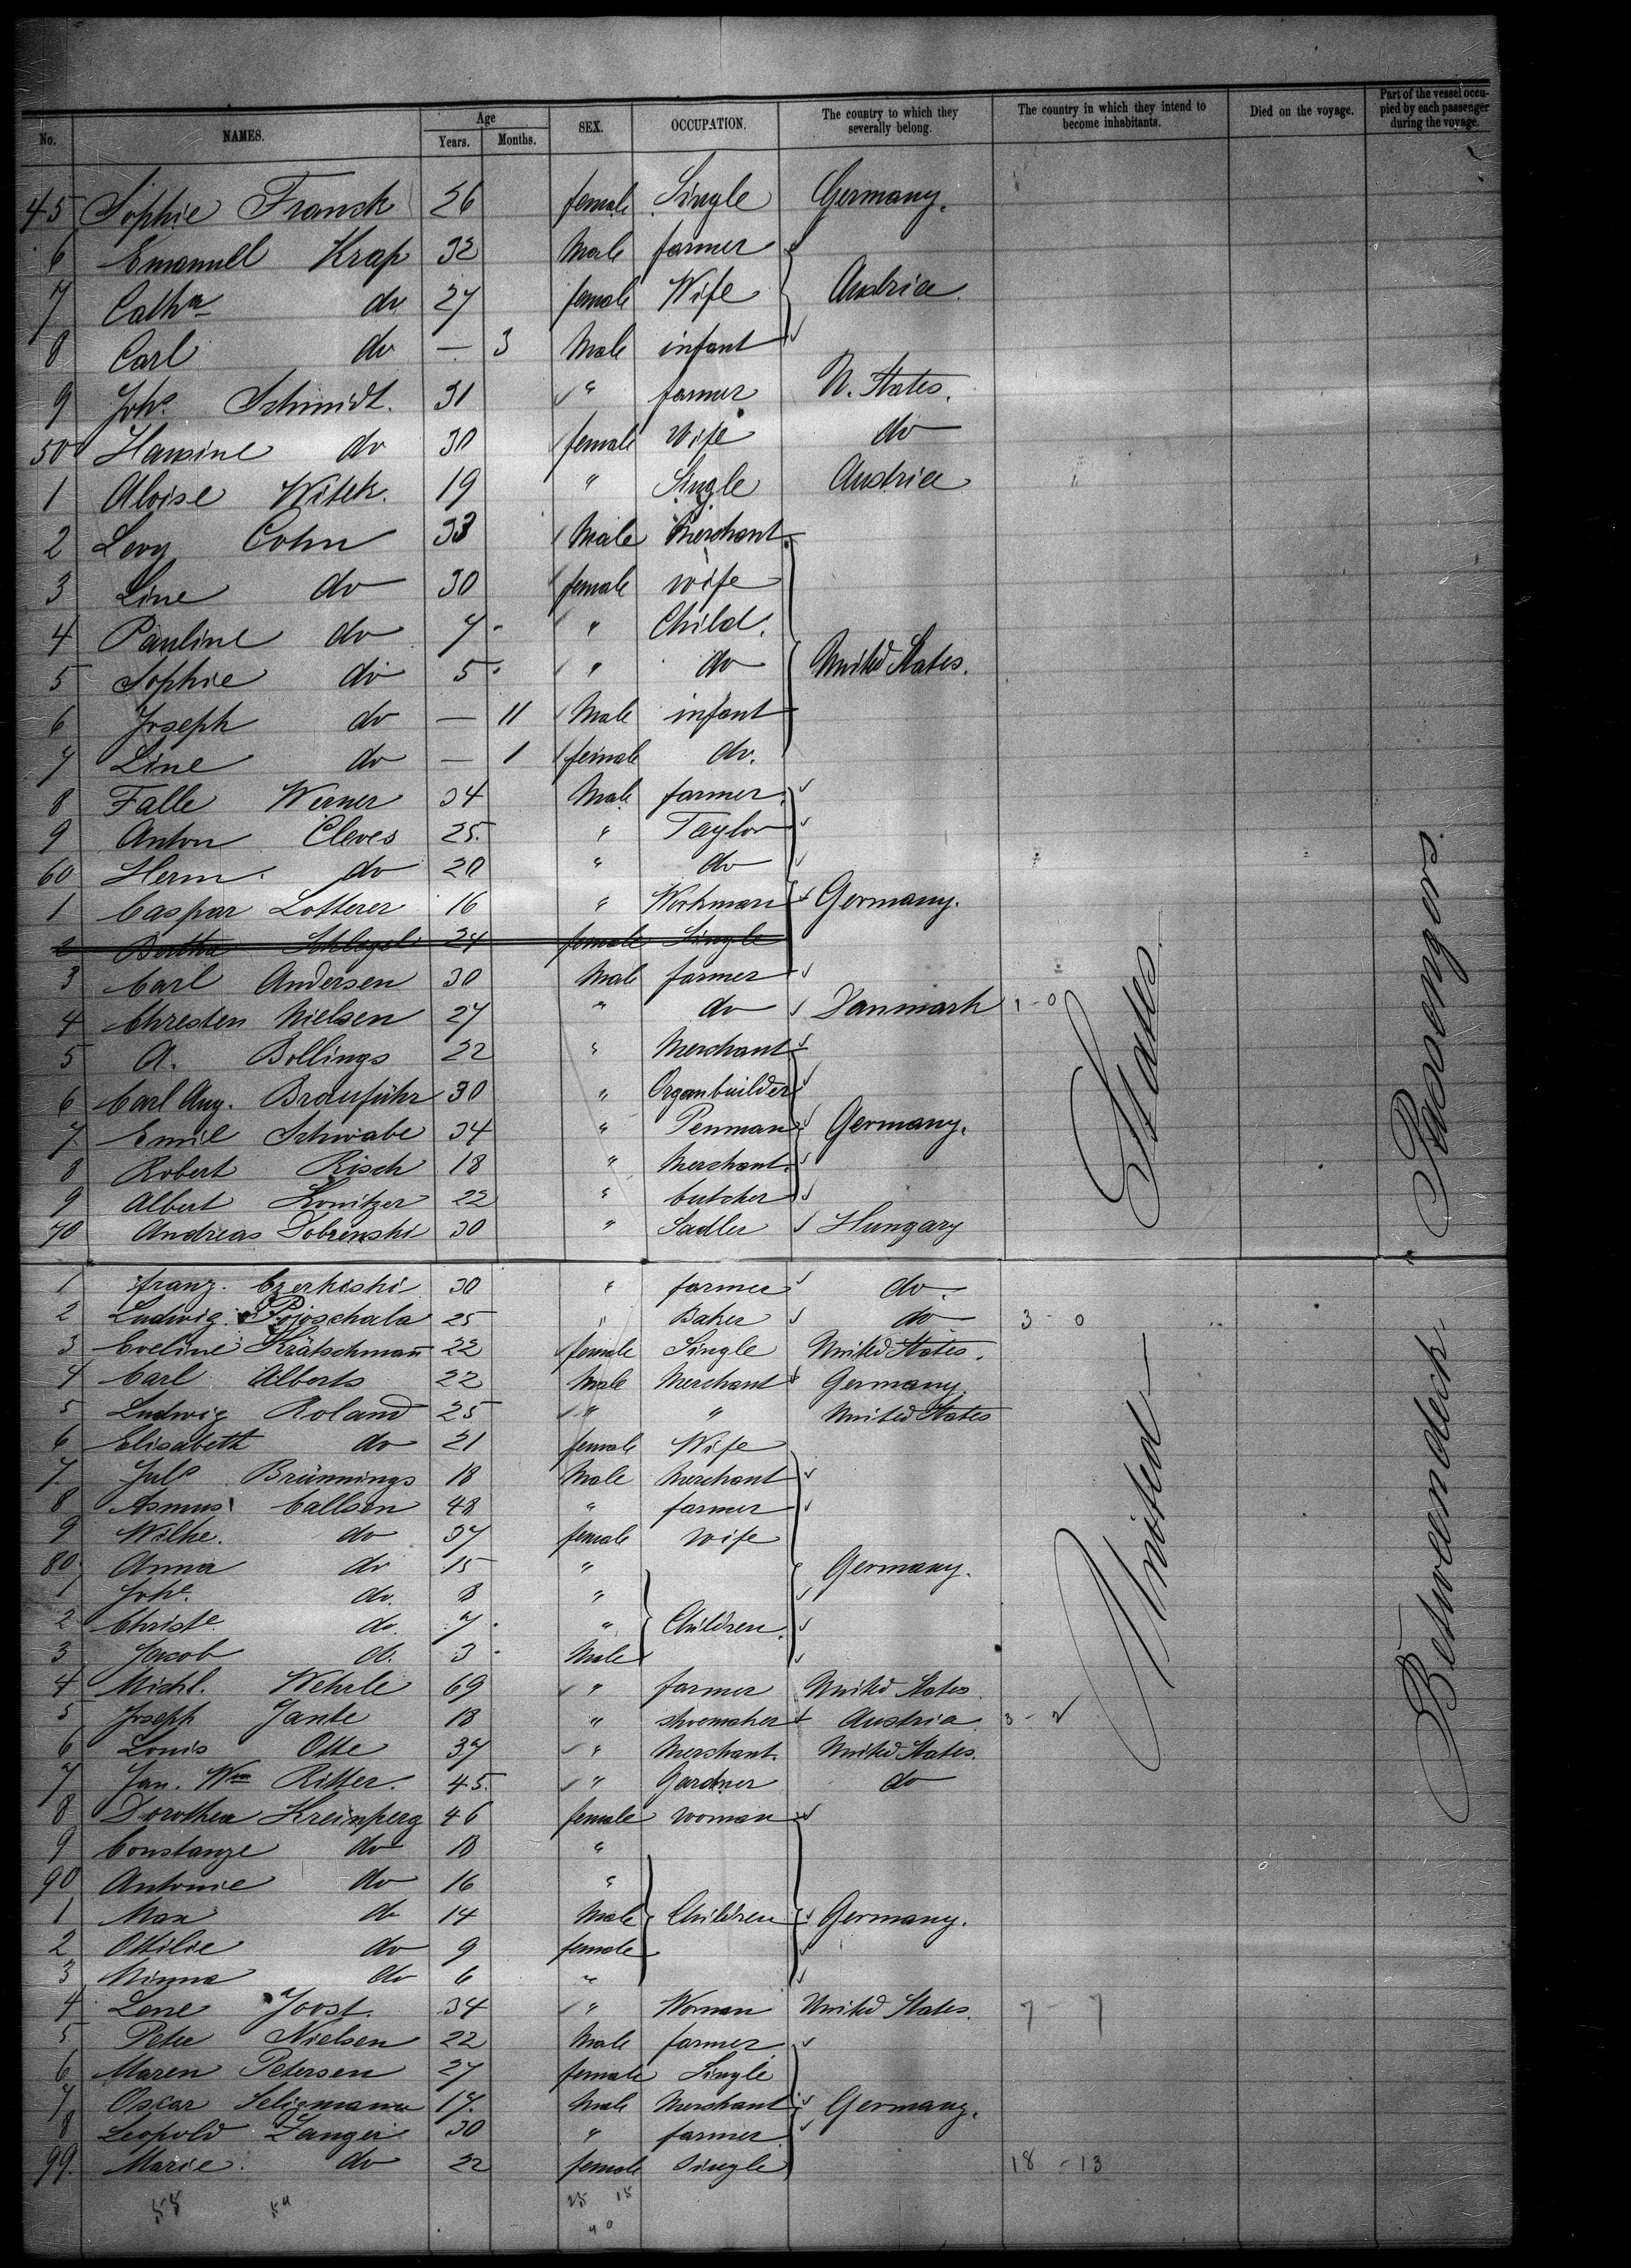 No. NAMES. Age Years. Months. SEX. OCCUPATION. The country to which they severally belong. The country in which they intend to become inhabitants. Died on the voyage. Part of the vessel occupied by each passenger during the voyage.
45 Sophie Franck 26 female Single Germany.
6 Emanuel Krap 32 Male farmer
7 Cathn do 27 female Wife Austria
8 Carl do — 3 Male infant
9 Johs Schmidt. 31 " farmer U. States.
50 Hansine do 30 female wife do
1 Aloise Witek. 19 " Single Austria
2 Levy Cohn 33 Male Merchant
3 Line do 30 female wife
4 Pauline do 7 " Child.
5 Sophie do 5 " do United States.
6 Joseph do — 11 Male infant
7 Line do — 1 female do.
8 Falle Werner 34 Male farmer
9 Anton Cleves 25. " Taylor
60 Herm. do 20 " do
1 Caspar Lotterer 16 " Workman Germany.
2 Bertha Schlegel 24 female Single
3 Carl Andersen 30 Male farmer
4 Chresten Nielsen 27 " do Danmark 1 - 0
5 A. Bollings 22 " Merchant
6 Carl Aug. Braufuhr 30 " Organbuilder
7 Emil Schwabe 34 " Penman Germany.
8 Robert Risch 18 " Merchant.
9 Albert Konitzer 22 " butcher
70 Andreas Dobrenski 30 " Sadler Hungary
1 franz. Czerkiski 30 " farmer do.
2 Ludwig Pojoschala 25 " Baker do 3 - 0
3 Eveline Krätschmann 22 female Single United States.
4 Carl Alberts 22 Male Merchant Germany.
5 Ludwig Roland 25 " " United States
6 Elisabeth do 21 female Wife
7 Juls Brünnings 18 Male Merchant
8 Asmus Callsen 48 " farmer
9 Wilhe. do 37 female wife
80 Anna do 15 " Germany.
1 Johe. do. 8 "
2 Christe do. 7 " Children.
3 Jacob do. 3 Male
4 Michl. Wehrle 69 " farmer United States.
5 Joseph Janke 18 " shoemaker Austria 3 -
6 Louis Otte 37 " Merchant. United States.
7 Jan. Wm Ritter. 45. " Gardner do
8 Dorothea Kreimperg 46 female woman
9 Constanze do 18 "
90 Antonie do 16 "
1 Max do 14 Male Children Germany.
2 Ottilie do 9 female
3 Minna do 6 "
4 Lene Joost. 34 " Woman United States. 7 - 7
5 Peter Nielsen 22 Male farmer
6 Maren Petersen 27 female Single
7 Oscar Seligmann 17. Male Merchant Germany.
8 Leopold Zanger 30 " farmer
99. Marie. do 22 female Single 18 - 13
United States
Betweendeck Passengers.